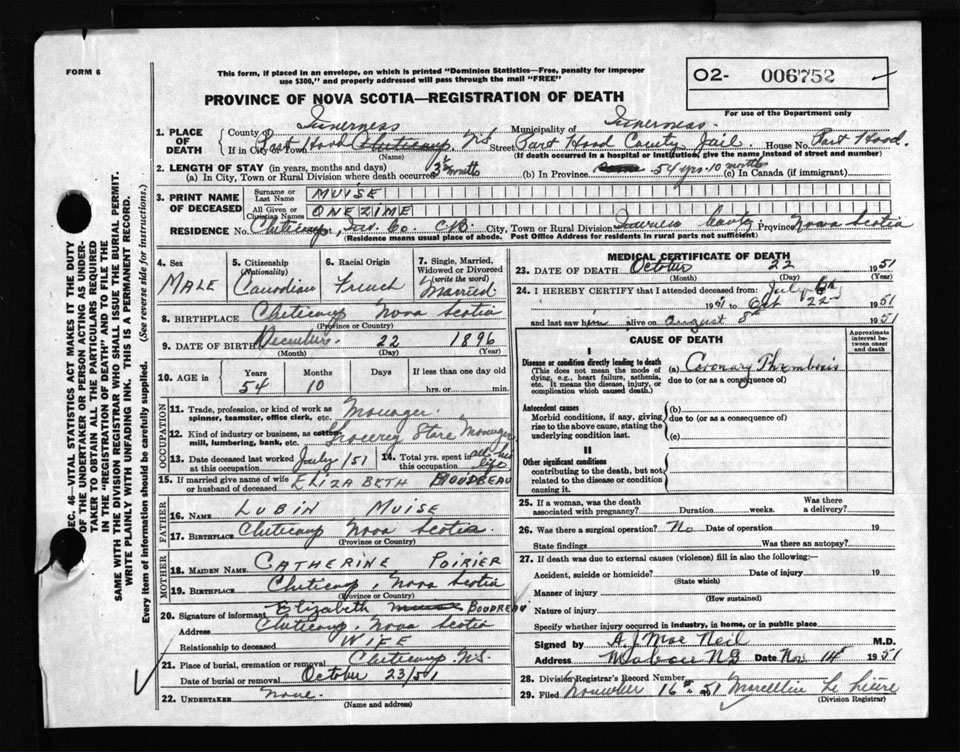 FORM 6
This form, if placed in an envelope, on which is printed "Dominion Statistics—Free, penalty for improper
use $300," and properly addressed will pass through the mail "FREE"
O2- 006752
For use of the Department only
PROVINCE OF NOVA SCOTIA—REGISTRATION OF DEATH
1. PLACE OF DEATH { County of Inverness Municipality of Inverness
If in City or Town Port Hood Cheticamp, N.S (Name) Street Port Hood County Jail. House No. Port Hood.
(If death occurred in a hospital or institution, give the name instead of street and number)
2. LENGTH OF STAY (in years, months and days)
(a) In City, Town or Rural Division where death occurred 3½ months (b) In Province 54 yrs. 10 months (c) In Canada (if immigrant)
3. PRINT NAME OF DECEASED { Surname or Last Name MUISE
All Given or Christian Names ONEZIME
RESIDENCE No. Cheticamp, Inv. Co. C.B. City, Town or Rural Division Inverness County Province Nova Scotia
(Residence means usual place of abode. Post Office Address for residents in rural parts not sufficient)
4. Sex MALE
5. Citizenship (Nationality) Canadian
6. Racial Origin French
7. Single, Married, Widowed or Divorced (write the word) Married
8. BIRTHPLACE Cheticamp Nova Scotia
(Province or Country)
9. DATE OF BIRTH December 22 1896
(Month) (Day) (Year)
10. AGE in Years 54 Months 10 Days If less than one day old hrs. or min.
OCCUPATION
11. Trade, profession, or kind of work as spinner, teamster, office clerk, etc. Manager.
12. Kind of industry or business, as cotton mill, lumbering, bank, etc. Grocery Store Manager
13. Date deceased last worked at this occupation July /51
14. Total yrs. spent in this occupation all his life
15. If married give name of wife or husband of deceased ELIZABETH BOUDREAU
FATHER
16. NAME LUBIN MUISE
17. BIRTHPLACE Cheticamp Nova Scotia
(Province or Country)
MOTHER
18. MAIDEN NAME CATHERINE POIRIER
19. BIRTHPLACE Cheticamp, Nova Scotia
(Province or Country)
20. Signature of informant Elizabeth Muise BOUDREAU
Address Cheticamp, Nova Scotia
Relationship to deceased WIFE
21. Place of burial, cremation or removal Cheticamp N.S.
Date of burial or removal October 23/51
22. UNDERTAKER None.
MEDICAL CERTIFICATE OF DEATH
23. DATE OF DEATH October 22 1951
(Month) (Day) (Year)
24. I HEREBY CERTIFY that I attended deceased from: July 6th
1951 to Oct 22nd 1951
and last saw him alive on August 8th 1951
CAUSE OF DEATH
Approximate interval between onset and death
I
Disease or condition directly leading to death
(This does not mean the mode of dying, e.g., heart failure, asthenia, etc. It means the disease, injury, or complication which caused death.)
(a) Coronary Thrombosis
due to (or as a consequence of)
Antecedent causes
Morbid conditions, if any, giving rise to the above cause, stating the underlying condition last.
(b)
due to (or as a consequence of)
(c)
II
Other significant conditions
contributing to the death, but not related to the disease or condition causing it.
25. If a woman, was the death associated with pregnancy? Duration weeks. Was there a delivery?
26. Was there surgical operation? No Date of operation 19
State findings Was there an autopsy?
27. If death was due to external causes (violence) fill in also the following:—
Accident, suicide or homicide? Date of injury 19
(State which)
Manner of injury
(How sustained)
Nature of injury
Specify whether injury occurred in industry, in home, or in public place
Signed by A. J. Mac Neil M.D.
Address Mabou N S Date Nov. 14th 1951
28. Division Registrar's Record Number
29. Filed November 16th 51 Marcellin Le Lièvre
(Division Registrar)
SEC. 46—VITAL STATISTICS ACT MAKES IT THE DUTY
OF THE UNDERTAKER OR PERSON ACTING AS UNDERTAKER TO OBTAIN ALL THE PARTICULARS REQUIRED
IN THE "REGISTRATION OF DEATH" AND TO FILE THE
SAME WITH THE DIVISION REGISTRAR WHO SHALL ISSUE THE BURIAL PERMIT.
WRITE PLAINLY WITH UNFADING INK. THIS IS A PERMANENT RECORD.
Every item of information should be carefully supplied. (See reverse side for instructions.)